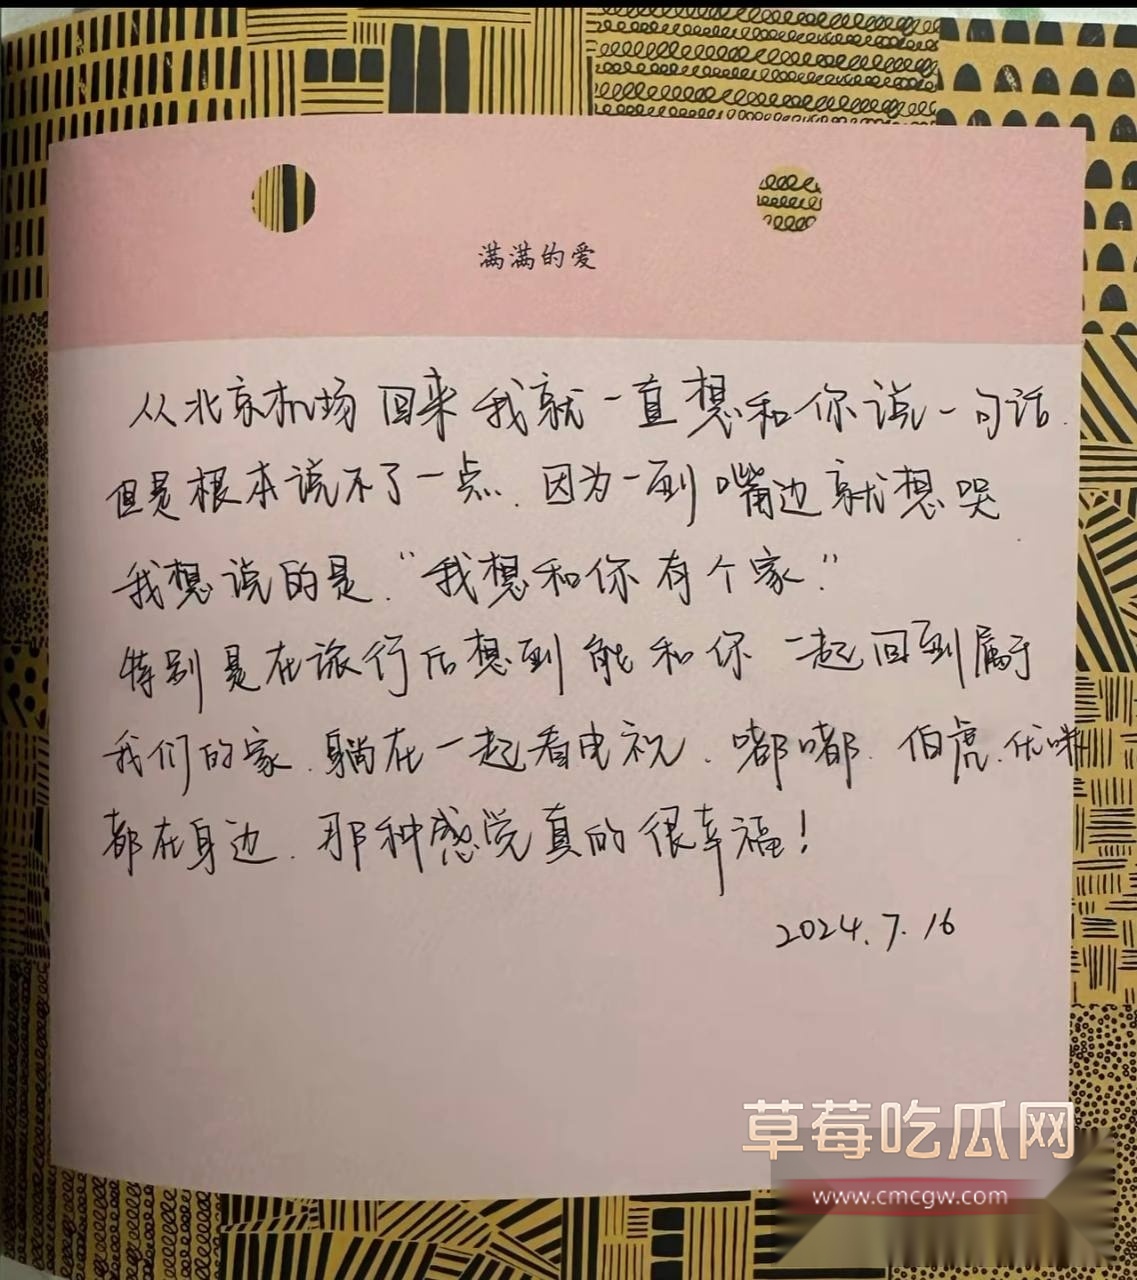 满满的爱
从北京机场回来我就一直想和你说一句话.
但是根本说不了一点.因为一到嘴边就想哭
我想说的是.“我想和你有个家.”
特别是在旅行后想到能和你一起回到属于
我们的家.躺在一起看电视.嘟嘟.伯虎.优咪
都在身边.那种感觉真的很幸福!
2024.7.16
草莓吃瓜网
www.cmcgw.com